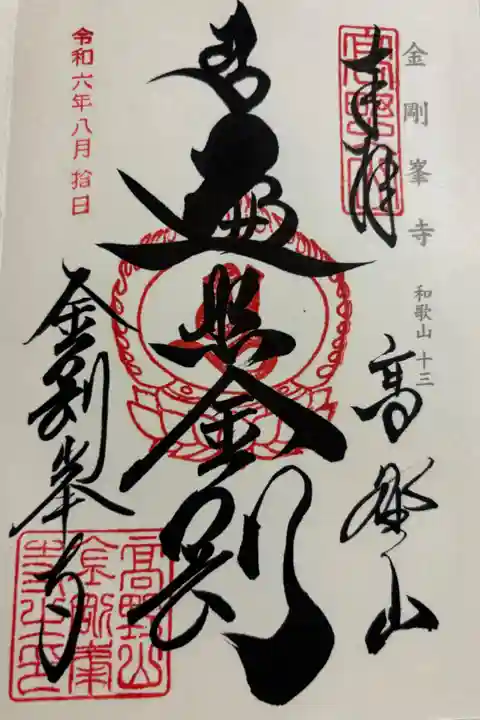 金剛峯寺 和歌山 十三
奉拝
高野山
遍照金剛
金剛峯寺
令和六年八月拾日
高野山
金剛峯